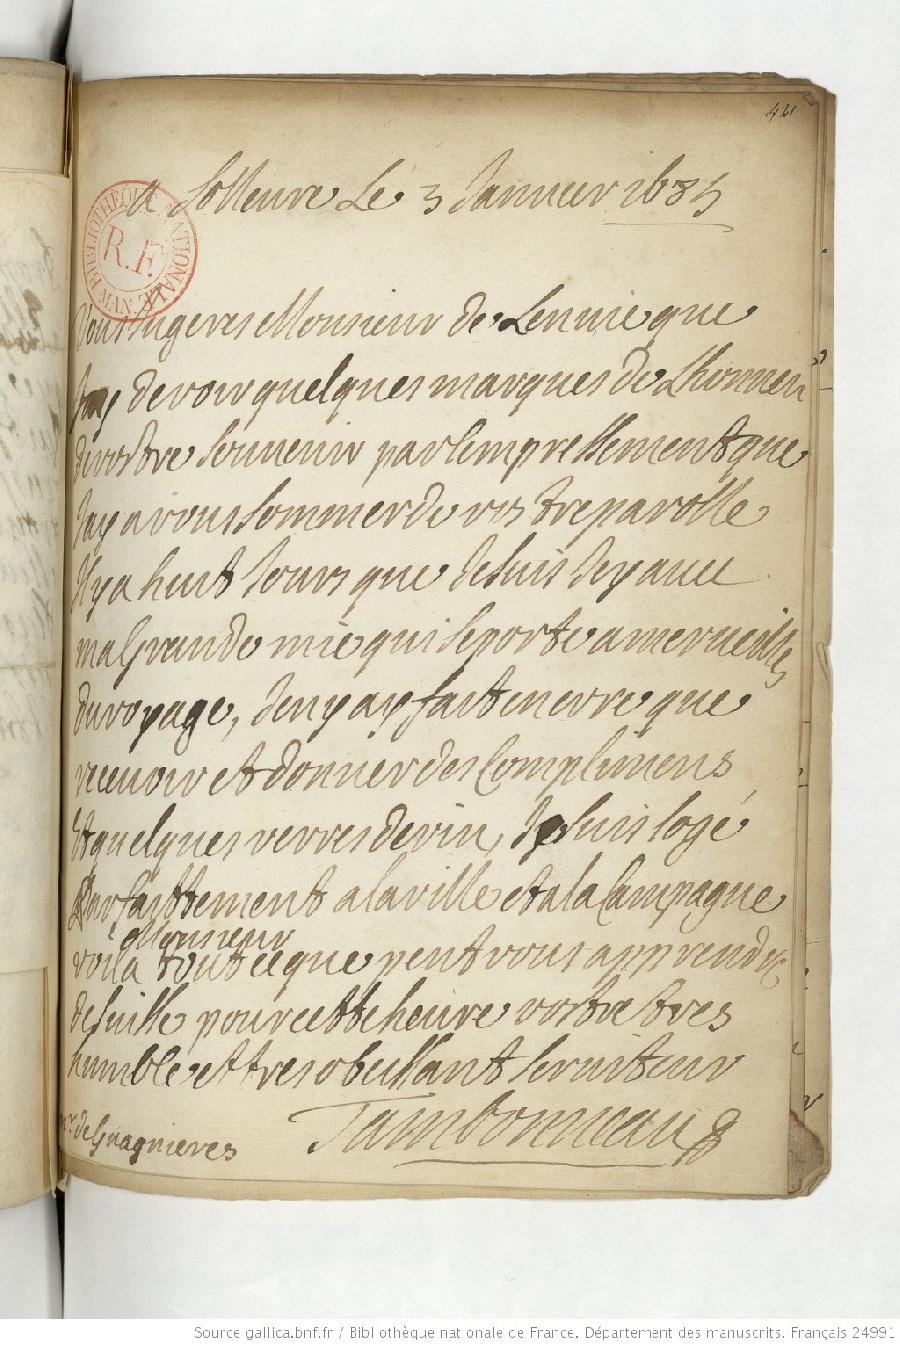 421
A Solleure Le 3 Januier 1685
BIBLIOTHEQUE NATIONALE MAN.
R.F.
Vous Jugeres Monsieur de Lenuie que
Jay de voir quelques marques de Lhonneur
de vostre Souuenir par lempressement que
Jay a vous sommer de vostre parolle
Il y a huit Jours que Je suis Icy auec
ma Grande mie qui se porte a merueilles
du voyage, Je ny ay fait encore que
receuoir et donner des Complimens
Et quelques verres de vin, Je suis logé
Parfaittement a la ville et a la Campagne
Monsieur
voila tout ce que peut vous apprendre
de suisse pour cette heure vostre tres
humble et tres obeissant seruiteur
Tambonneau
mr. de Guagnieres
Source gallica.bnf.fr / Bibliothèque nationale de France. Département des manuscrits. Français 24991